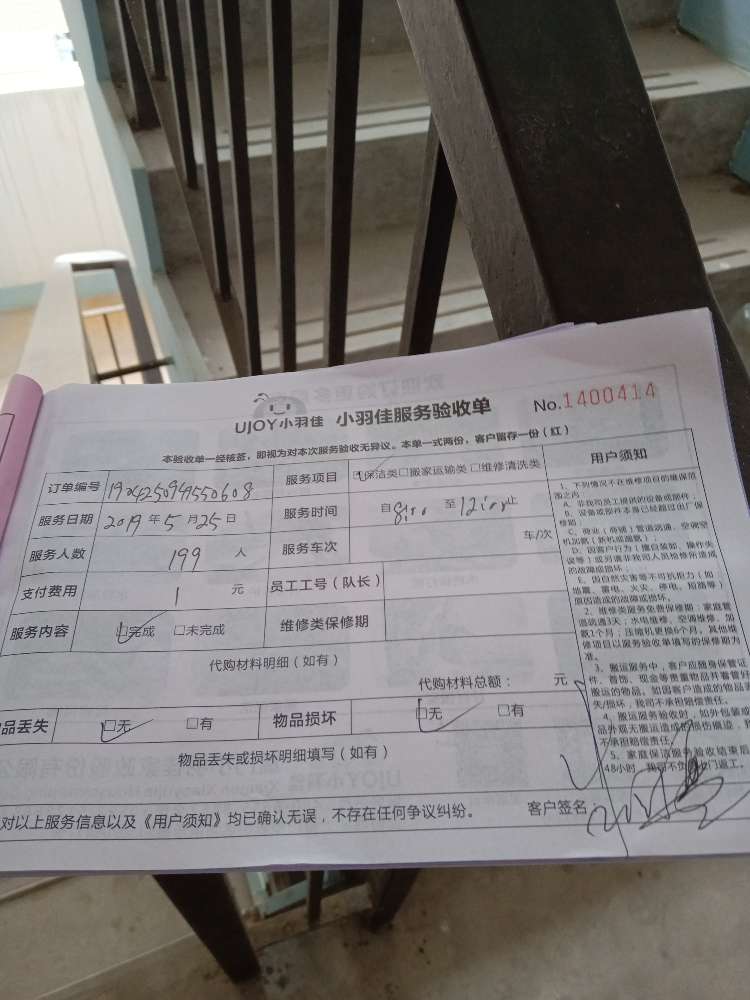 UJOY小羽佳 小羽佳服务验收单 No.1400414
本验收单一经核签，即视为对本次服务验收无异议。本单一式两份，客户留存一份（红）
订单编号 190425094550608 服务项目 ☑保洁类□搬家运输类□维修清洗类
服务日期 2019年5月25日 服务时间 自8:00至12:00止
服务人数 199 人 服务车次 车/次
支付费用 1 元 员工工号（队长）
服务内容 ☑完成 □未完成 维修类保修期
代购材料明细（如有）
代购材料总额： 元
品丢失 ☑无 □有 物品损坏 ☑无 □有
物品丢失或损坏明细填写（如有）
对以上服务信息以及《用户须知》均已确认无误，不存在任何争议纠纷。 客户签名
用户须知
1、下列情况不在维修项目的维保范
围之内
A、非我司员工提供的设备或部件；
B、设备或部件本身已经超过出厂保
修期；
C、商业（商铺）管道疏通、空调空
机加氨（新机或漏氨）；
D、因客户行为（擅自装卸、操作失
误等）或另请非我司人员检修所造成
的故障或损坏；
E、因自然灾害等不可抗拒力（如
地震、雷电、火灾、停电、短路等）
原因造成的故障或损坏。
2、维修类服务免费保修期：家庭管
道疏通3天；水电维修、空调维修、加
氨1个月；压缩机更换6个月。其他维
修项目以服务验收单填写的保修期为
准。
3、搬运服务中，客户应随身保管证
件、首饰、现金等贵重物品并看管好
搬运的物品。如因客户造成的物品丢
失/损坏，我司不承担赔偿责任。
4、搬运服务验收时，如外包装或
品外观无搬运造成的损伤痕迹，我
不承担赔偿责任。
5、家庭保洁服务验收结束后
48小时，我司不负责上门返工。